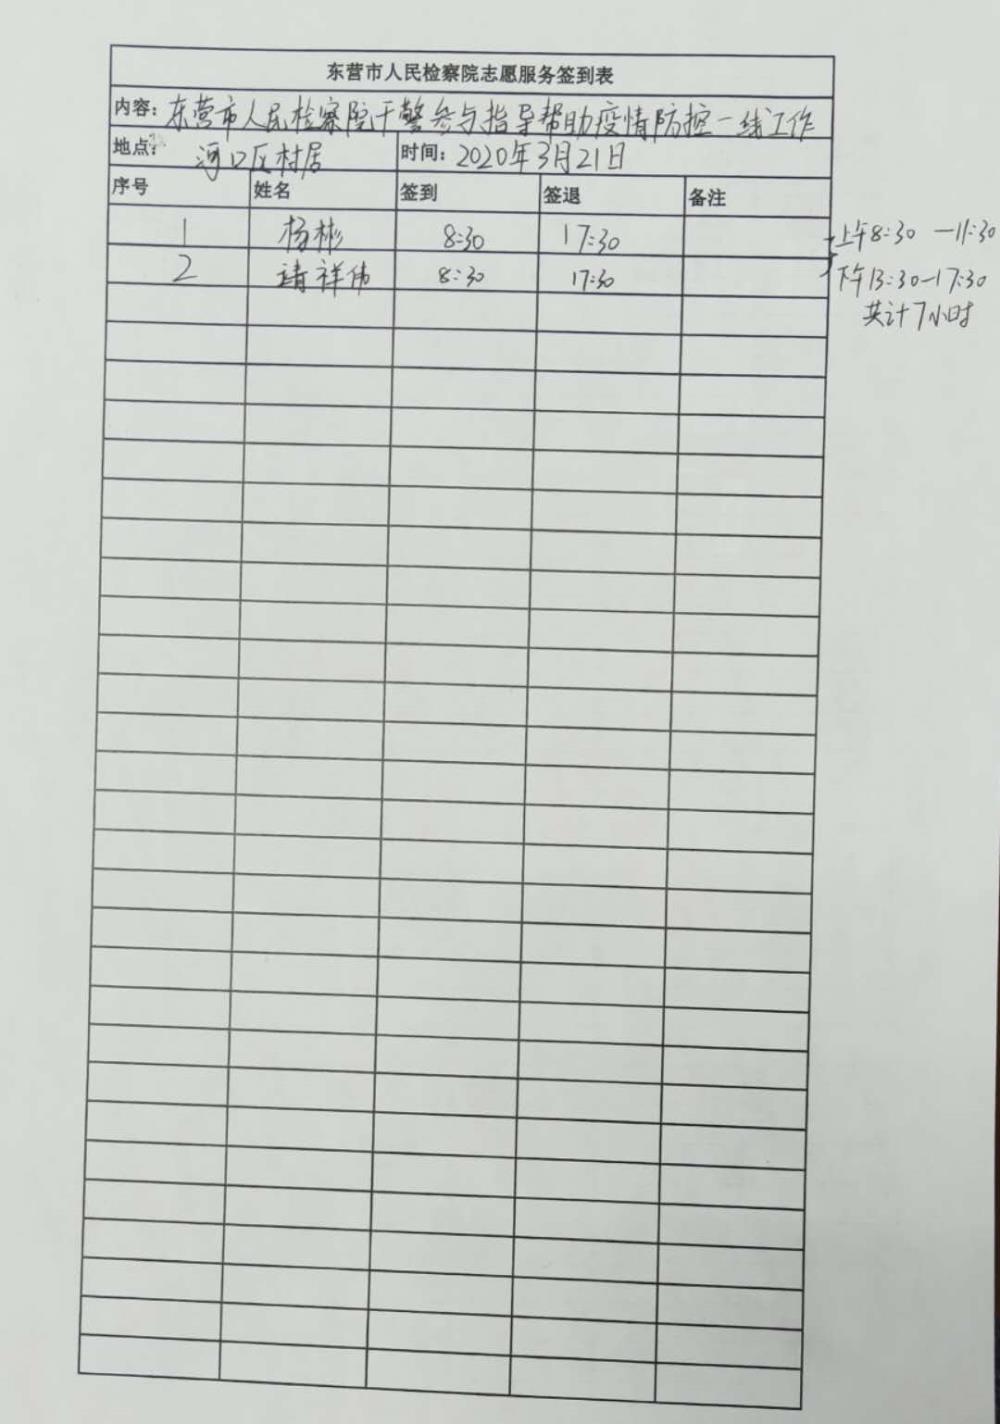 东营市人民检察院志愿服务签到表
内容：东营市人民检察院干警参与指导帮助疫情防控一线工作
地点：河口区村居 时间：2020年3月21日
序号 姓名 签到 签退 备注
1 杨彬 8:30 17:30 上午8:30—11:30
2 靖祥伟 8:30 17:30 下午13:30—17:30
共计7小时